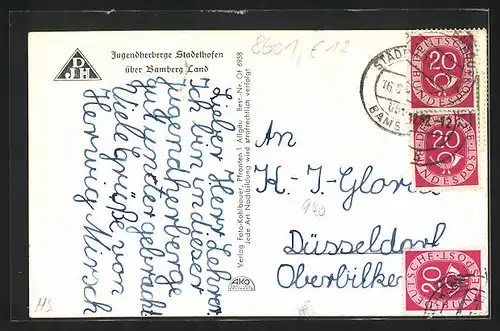 DJH
Jugendherberge Stadelhofen
über Bamberg Land
Lieber Herr Lehrer
Ich bin in dieser
Jugendherberge
gut untergebracht
Viele Grüße von
Herwig Mirsch
Verlag Foto-Kohlbauer, Pfronten 1 Allgäu Best.-Nr. Of 6958
Jede Art Nachbildung wird strafrechtlich verfolgt
AKO
8601, € 12
An
H.-J. Gloria
940
Düsseldorf
Oberbilk
HS
20
DEUTSCHE BUNDESPOST
20
DEUTSCHE BUNDESPOST
20